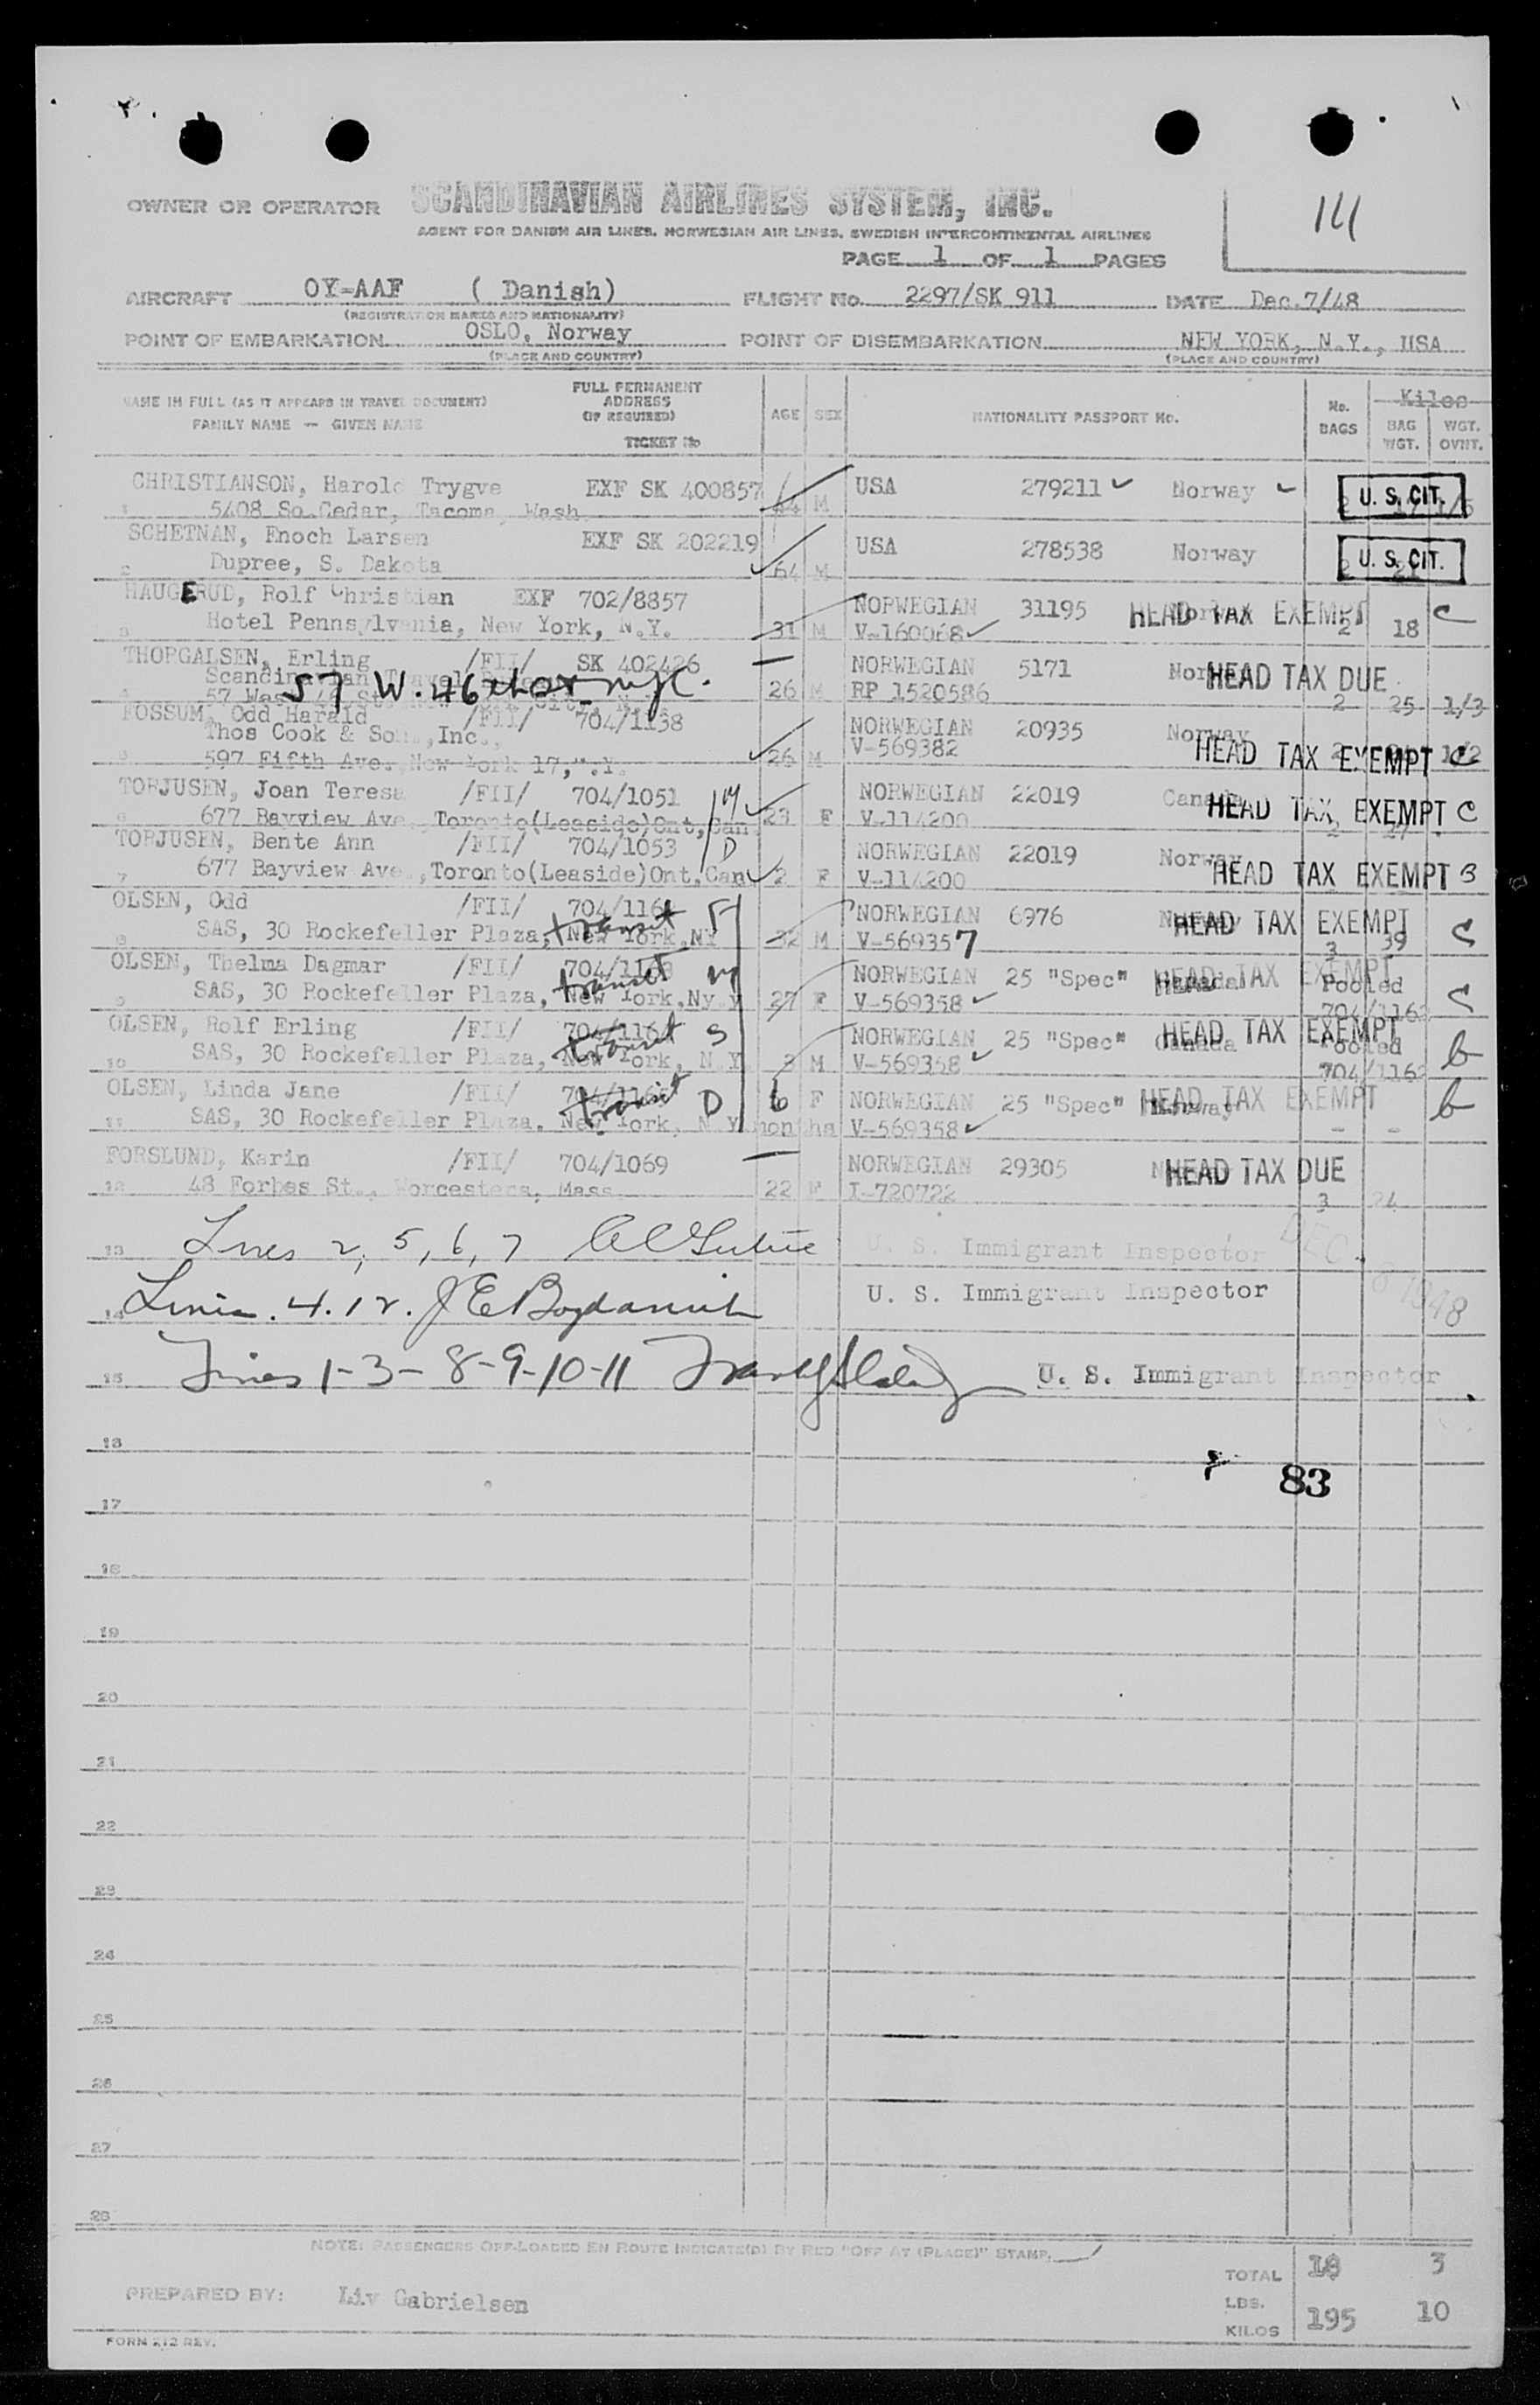 141
OWNER OR OPERATOR SCANDINAVIAN AIRLINES SYSTEM, INC.
AGENT FOR DANISH AIR LINES, NORWEGIAN AIR LINES, SWEDISH INTERCONTINENTAL AIRLINES
PAGE 1 OF 1 PAGES
AIRCRAFT OY-AAF ( Danish) FLIGHT No. 2297/SK 911 DATE Dec.7/48
(REGISTRATION MARKS AND NATIONALITY)
POINT OF EMBARKATION OSLO, Norway POINT OF DISEMBARKATION NEW YORK, N.Y., USA
(PLACE AND COUNTRY) (PLACE AND COUNTRY)
NAME IN FULL (AS IT APPEARS IN TRAVEL DOCUMENT) FAMILY NAME — GIVEN NAME FULL PERMANENT ADDRESS (IF REQUIRED) TICKET No AGE SEX NATIONALITY PASSPORT No. No. BAGS Kilos BAG WGT. WGT. OVWT.
CHRISTIANSON, Harold Trygve EXF SK 400857 USA 279211 Norway U. S. CIT.
1 5408 So.Cedar, Tacoma, Wash 44 M 2 17 1/5
SCHETNAN, Enoch Larsen EXF SK 202219 USA 278538 Norway U. S. CIT.
2 Dupree, S. Dakota 64 M 2 21
HAUGERUD, Rolf Christian EXF 702/8857 NORWEGIAN 31195 Norway HEAD TAX EXEMPT C
3 Hotel Pennsylvania, New York, N.Y. 31 M V-160068 2 18
THORGALSEN, Erling /FII/ SK 402426 NORWEGIAN 5171 Norway HEAD TAX DUE
Scandinavian Travel
4 57 West 46 St. 57 W. 46th or NYC. 26 M RP 1520586 2 25 1/3
FOSSUM, Odd Harald /FII/ 704/1138 NORWEGIAN 20935 Norway
Thos Cook & Son.,Inc., V-569382 HEAD TAX EXEMPT C
5 597 Fifth Ave. New York 17, N.Y. 26 M 2 1/2
TORJUSEN, Joan Teresa /FII/ 704/1051 M NORWEGIAN 22019 Canada HEAD TAX EXEMPT C
6 677 Bayview Ave. Toronto(Leaside)Ont,Can. 23 F V-114200 2 27
TORJUSEN, Bente Ann /FII/ 704/1053 D NORWEGIAN 22019 Norway
7 677 Bayview Ave.,Toronto(Leaside)Ont,Can. 2 F V-114200 HEAD TAX EXEMPT B
OLSEN, Odd /FII/ 704/1162 F NORWEGIAN 6976 Norway HEAD TAX EXEMPT
8 SAS, 30 Rockefeller Plaza, New York,NY transit 32 M V-569357 3 39 C
OLSEN, Thelma Dagmar /FII/ M NORWEGIAN 25 "Spec" Canada HEAD TAX EXEMPT Pooled
9 SAS, 30 Rockefeller Plaza, New York,Ny transit 27 F V-569358 704/1162 C
OLSEN, Rolf Erling /FII/ 704/1164 S NORWEGIAN 25 "Spec" Canada HEAD TAX EXEMPT Pooled
10 SAS, 30 Rockefeller Plaza, New York, N Y transit 3 M V-569358 704/1162 b
OLSEN, Linda Jane /FII/ D 6 F NORWEGIAN 25 "Spec" Norway HEAD TAX EXEMPT b
11 SAS, 30 Rockefeller Plaza, New York, N Y transit months V-569358 - -
FORSLUND, Karin /FII/ 704/1069 NORWEGIAN 29305 Norway HEAD TAX DUE
12 48 Forbes St., Worcesters, Mass 22 F I-720722 3 24
13 Lines 2, 5, 6, 7 U. S. Immigrant Inspector
DEC 8 1948
14 Lines. 4. 12. U. S. Immigrant Inspector
15 Lines 1-3-8-9-10-11 U. S. Immigrant Inspector
16
83
17
18
19
20
21
22
23
24
25
26
27
28
NOTE: PASSENGERS OFF-LOADED EN ROUTE INDICATE(D) BY RED "OFF AT (PLACE)" STAMP.
TOTAL 18 3
PREPARED BY: Liv Gabrielsen
LBS.
KILOS 195 10
FORM 212 REV.